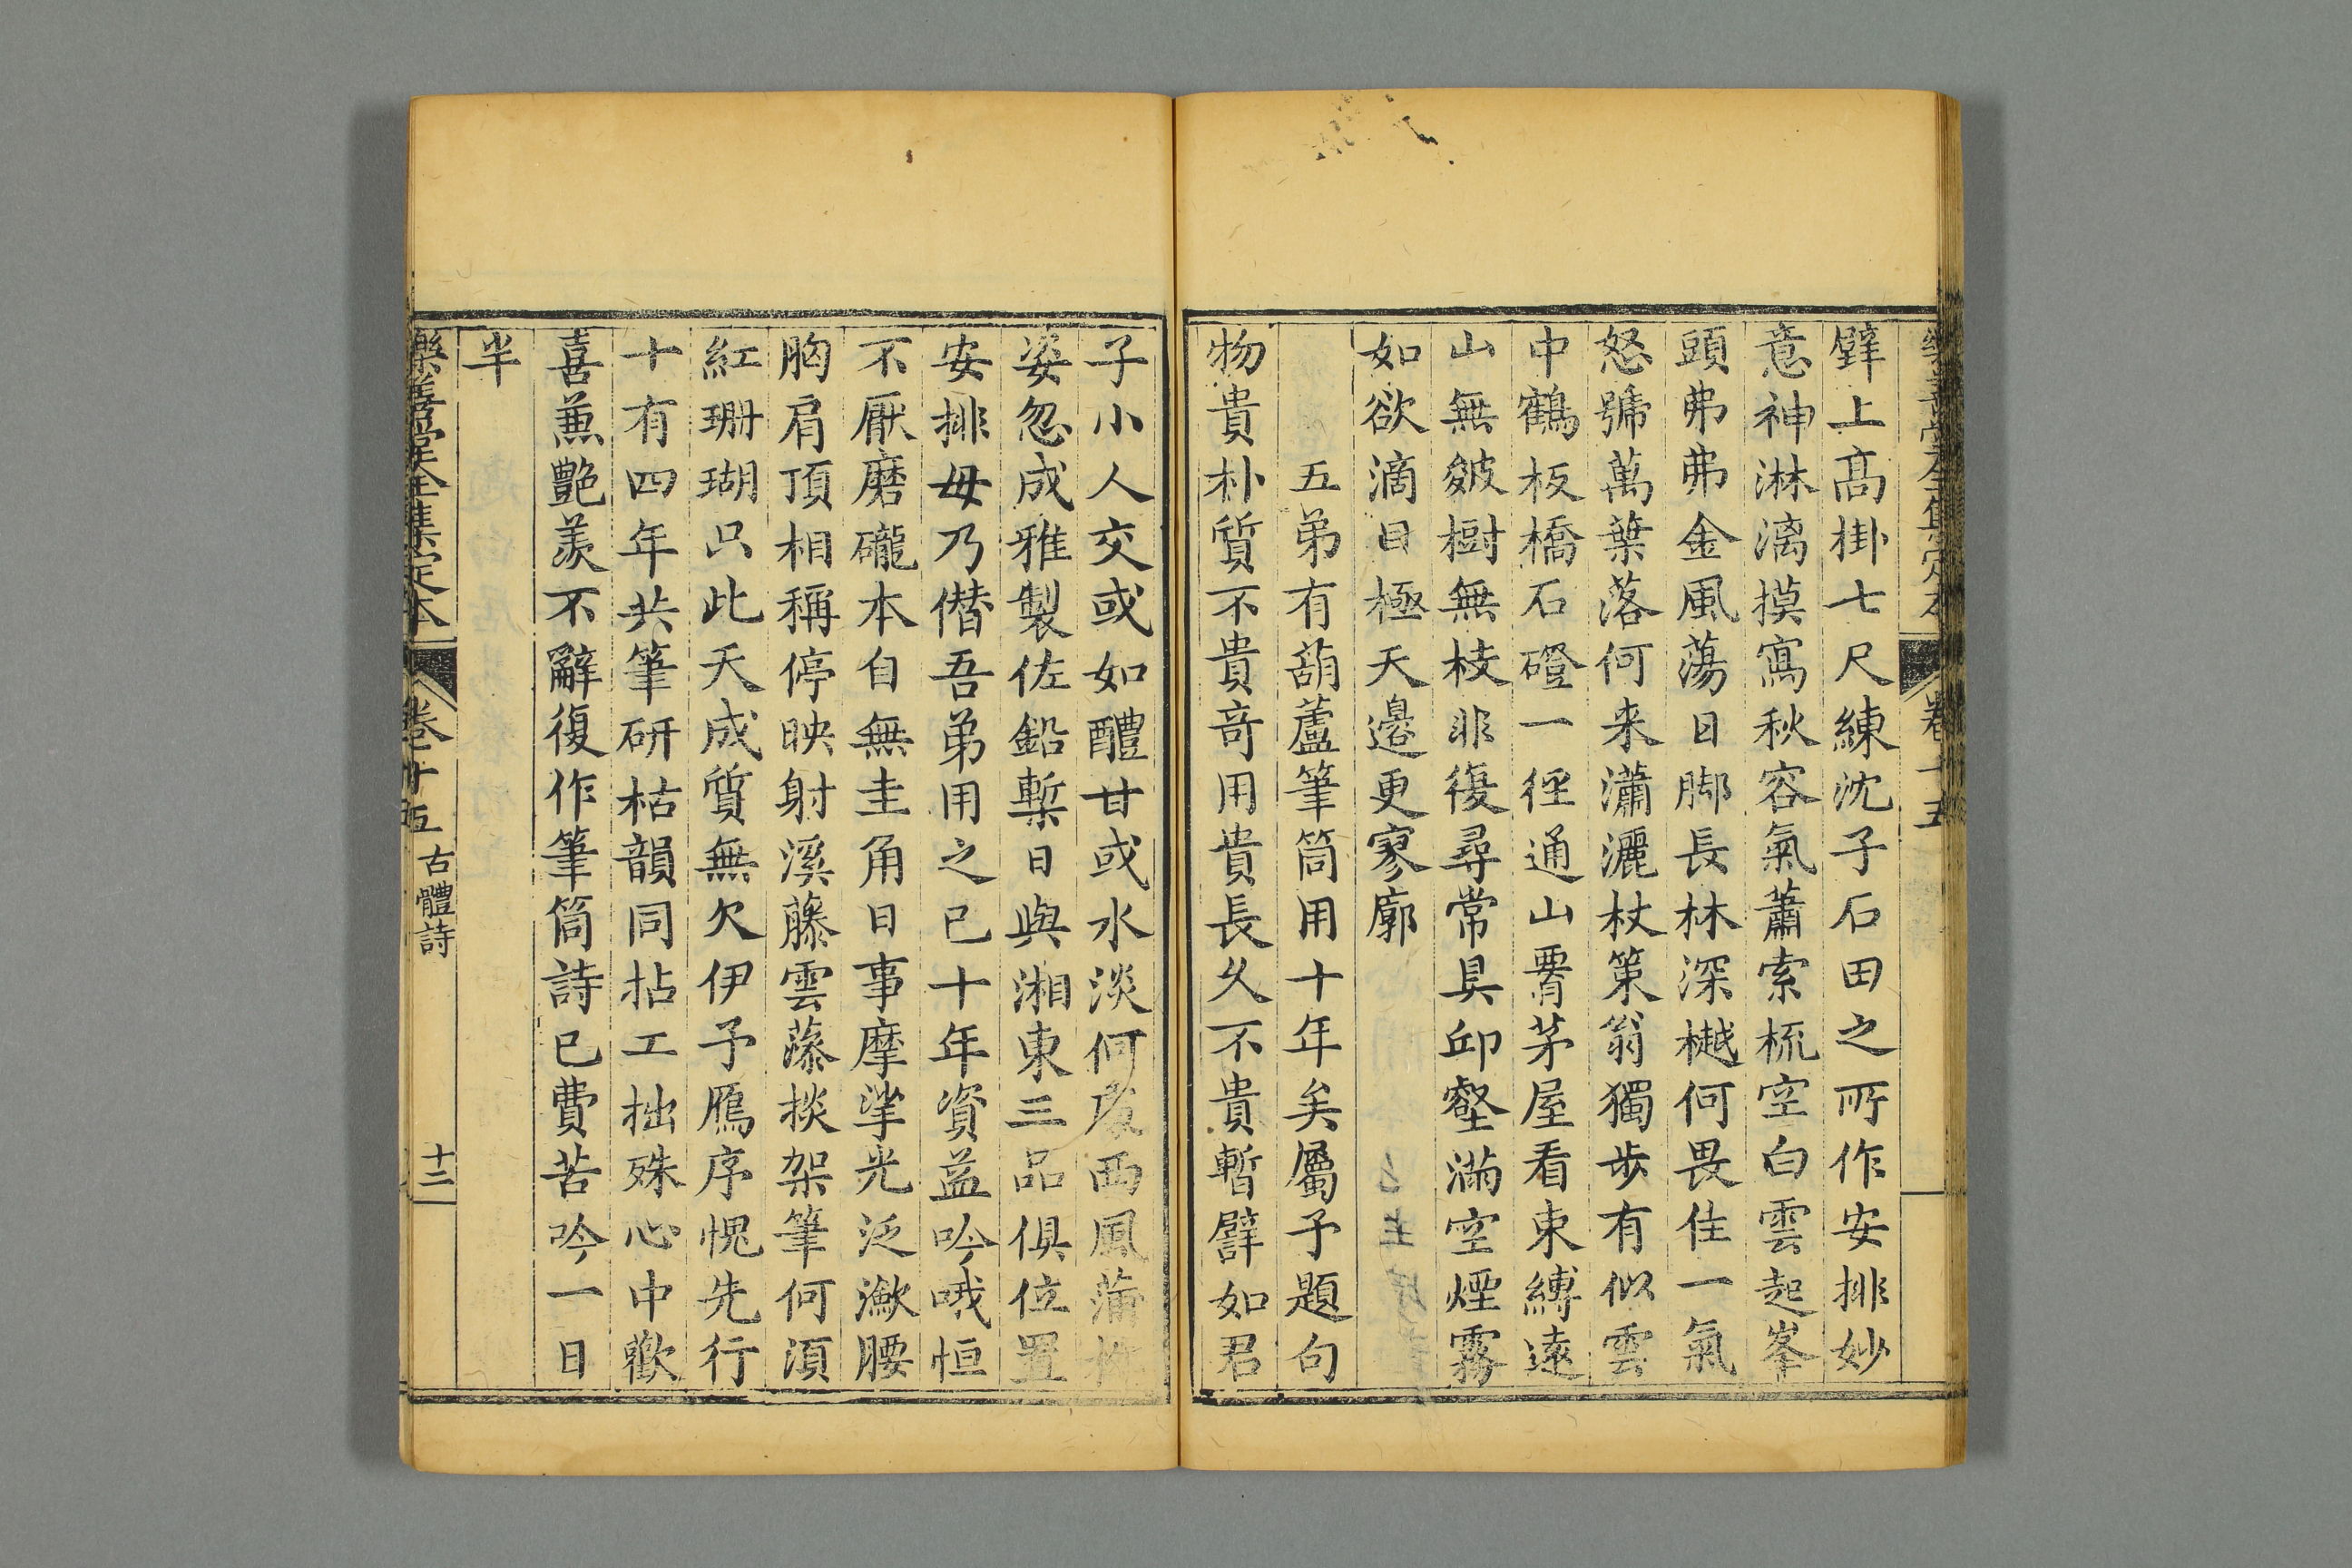 樂善堂全集定本 卷十五
壁上高掛七尺練沈子石田之所作安排妙
意神淋漓摸寫秋容氣蕭索梳空白雲起峯
頭弗弗金風蕩日脚長林深樾何畏佳一氣
怒號萬葉落何来瀟灑杖策翁獨步有似雲
中鶴板橋石磴一徑通山罥茅屋看束縛遠
山無皴樹無枝非復尋常具邱壑滿空煙霧
如欲滴目極天邊更寥廓
五弟有葫蘆筆筒用十年矣屬予題句
物貴朴質不貴竒用貴長久不貴暫譬如君
子小人交或如醴甘或水淡何處西風蒲
姿忽成雅製佐鉛槧日與湘東三品俱位置
安排毋乃僭吾弟用之已十年資益吟哦恒
不厭磨礲本自無圭角日事摩挲光泛瀲腰
胸肩頂相稱停映射溪藤雲藻掞架筆何湏
紅珊瑚只此天成質無欠伊予鴈序愧先行
十有四年共筆研枯韻同拈工拙殊心中歡
喜兼艷羨不辭復作筆筒詩已費苦吟一日
半
樂善堂全集定本 卷十五 古體詩 十三